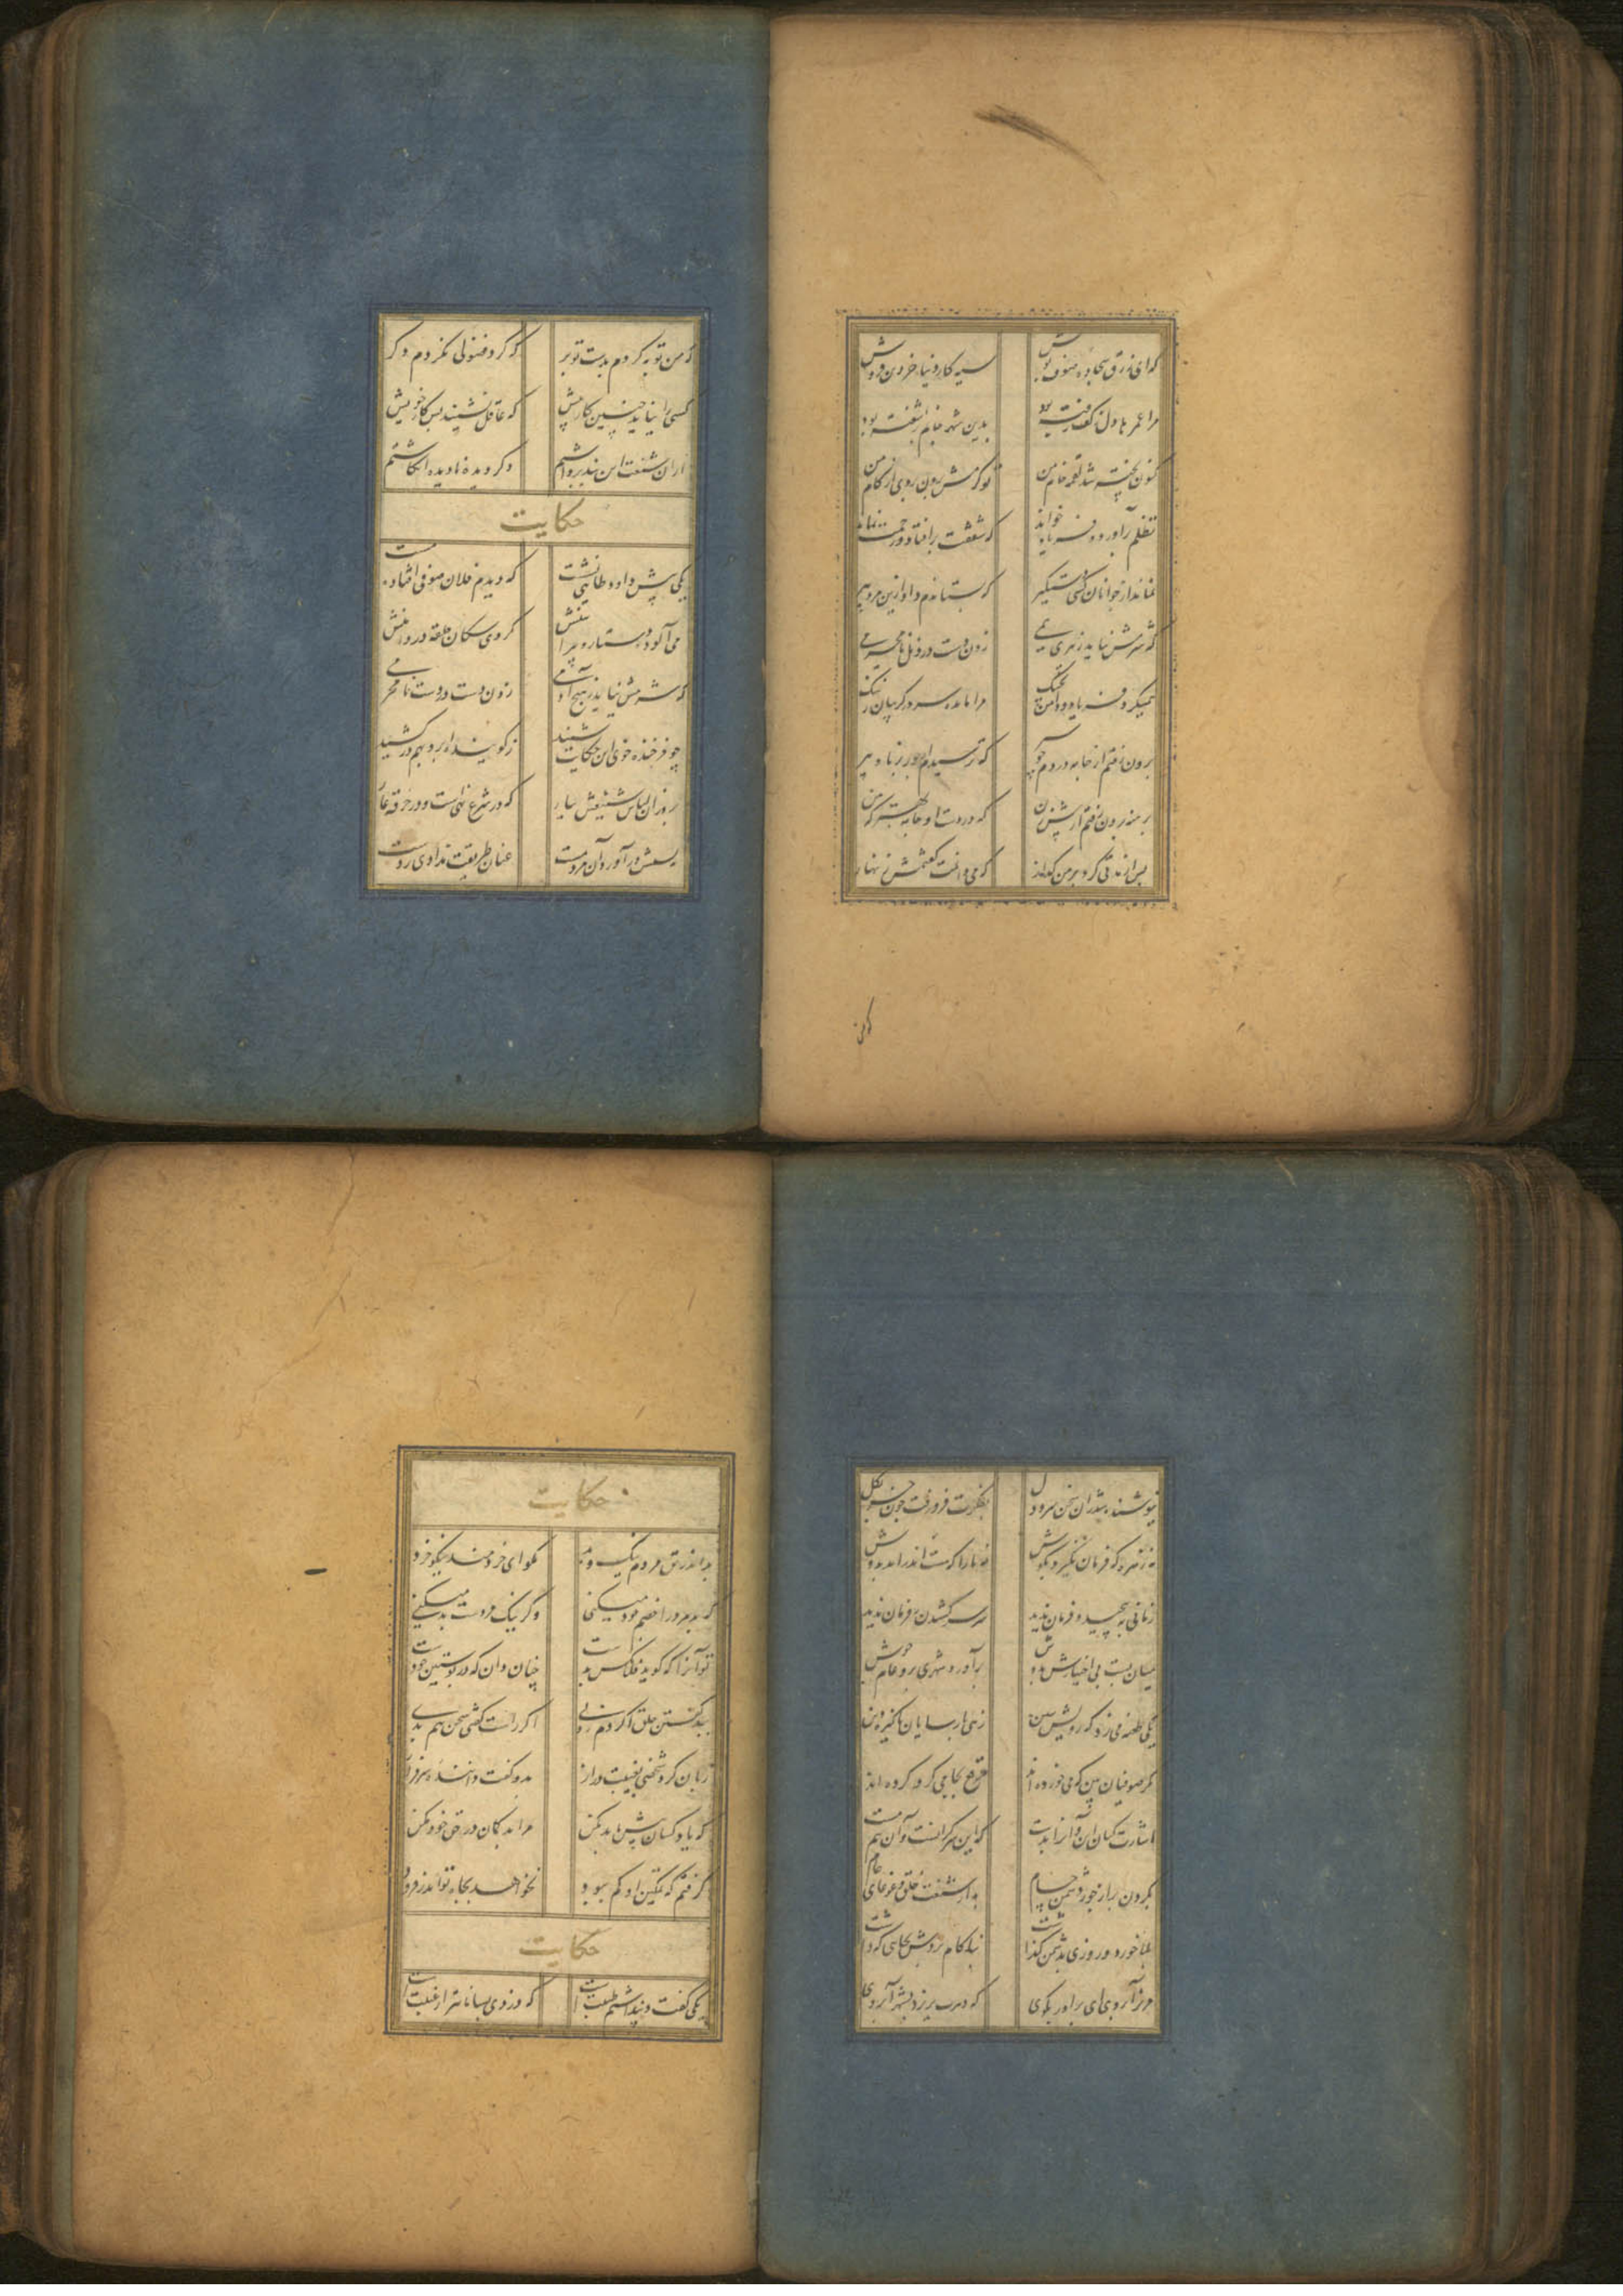 که ای زرق سجاده صوف پوش سیه کار دنیا خر دین فروش
مرا عمرها دل ز کف رفته بود بدین شهد جانم آشفته بود
کنون پخته شد لقمه خام من تو گرمش برون بردی از کام من
تظلم برآورد و فریاد خواند که شفقت برافتاد و رحمت نماند
نماند از جوانان کسی دستگیر که بستاندم داد ازین مرد پیر
که شرمش نیاید ز پیری همی زدن دست در ذیل نامحرمی
همیکرد فریاد و دامن بچنگ مرا مانده سر در گریبان ز ننگ
برون رفتم از جامه در دم چو سیر که ترسیدم از جور برنا و پیر
برهنه برون رفتم از پیش زن که در دست او جامه بهتر که من
پس از مدتی کرد بر من گذار که می دانیت گفتمش زنهار
که من
که من توبه کردم بدست تو بر که گرد فضولی نگردم دگر
کسی را نیاید چنین کار پیش که عاقل نشیند پس کار خویش
ازان شنعت این پند برداشتم دگر دیده نادیده انگاشتم
حکایت
یکی پیش داود طایی نشست که دیدم فلان صوفی افتاده مست
می آلود دستار و پیراهنش گروهی سگان حلقه در دامنش
که شرمش نیاید ز هیچ آدمی زدن دست در دست نامحرمی
چو فرخنده خوی این حکایت شنید ز گوینده ابرو بهم در کشید
بروزان لباس شنیعش بیار که در شرع نهی است و در خرقه عار
در آور مست عنان طریقت
نیوشنده شد زان سخن سرد دل بفکرت فرو رفت چون خر بگل
نه زهره که فرمان نگیرد بگوش نه یارا که مست اندر آرد بدوش
زمانی بپیچید و فرمان ندید ره سر کشیدن ز فرمان ندید
میان بست و بی اختیارش بدوش برآورد و شهری برو عام جوش
یکی طعنه می زد که درویش بین زهی پارسایان پاکیزه دین
که صوفیان بین که می خورده اند مرقع بجامی گرو کرده اند
اشارت کنان این و آنرا بدست که این سرگرانست و آن نیم مست
بگردن بر از جور دشمن حسام به از شنعت خلق و غوغای عام
بلا خورد و روزی بدشمن گذاشت بناکام بردش بجایی که داشت
مریز آبروی ای برادر بکوی که دهرت بریزد بشهر آبروی
حکایت
بد اندر حق مردم نیک و بد مگو ای خردمند نیکو خرد
که بد مرد را خصم خود میکنی وگر نیک مردست بد میکنی
تو آنرا که گوید فلان کس بدست چنان دان که در پوستین خودست
ببد گفتن خلق اگر دم زدی اگر راست گفتی سخن هم بدی
زبان کرد شخصی بغیبت دراز بدو گفت داننده سرفراز
که یاد کسان پیش ما بد مکن مرا بد گمان در حق خود مکن
گرفتم که تمکین او کم ببود نخواهد بجاه تو اندر فزود
حکایت
یکی گفت و پنداشتم طیبت است که دزدی بسامان تر از غیبت است